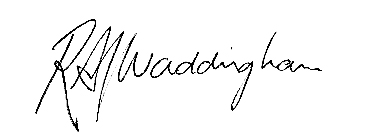 RAJ Waddingham